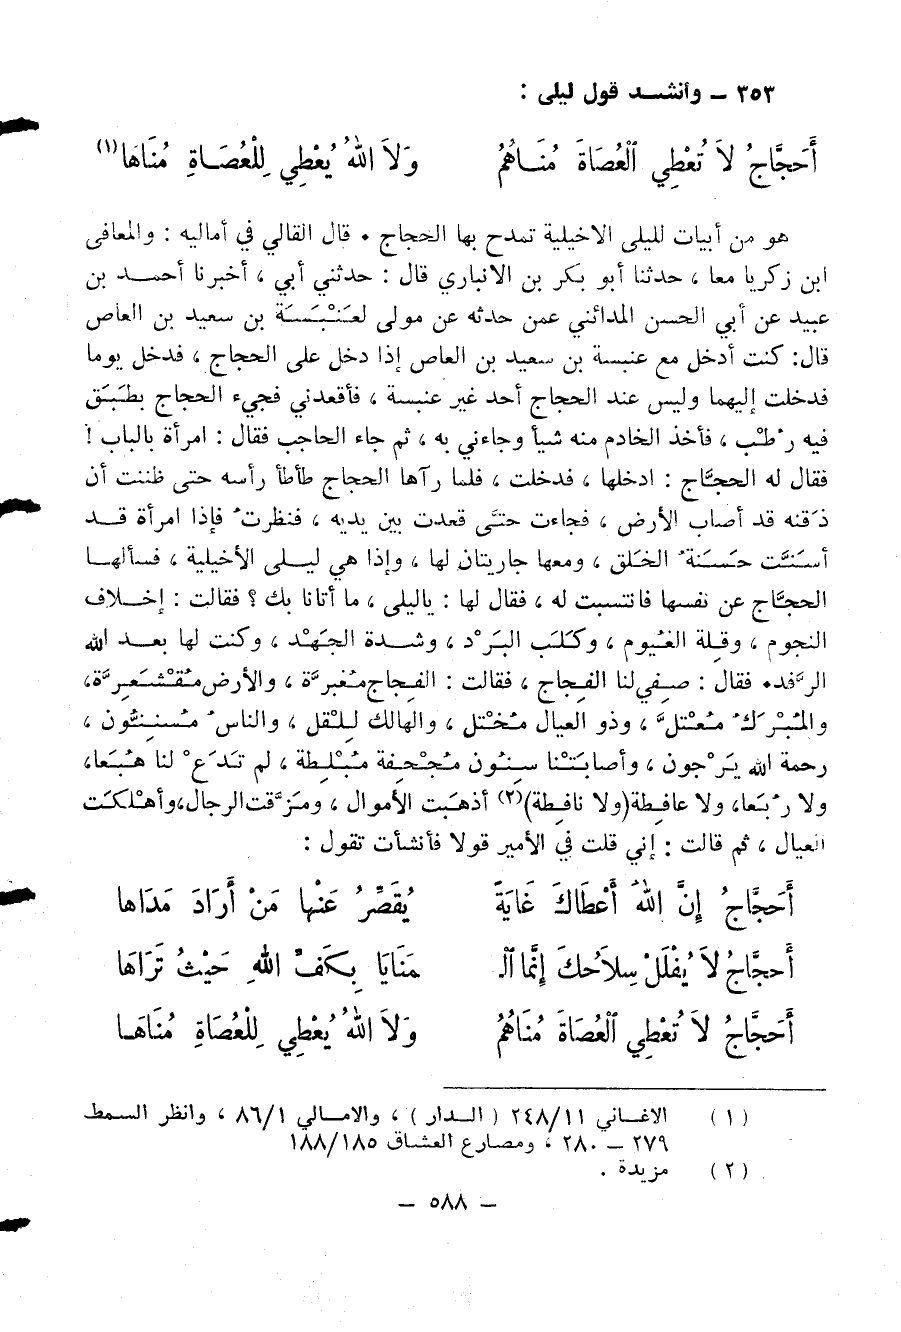 ٣٥٣ ــ وأنشــد قول ليلى :
أَحَجَّاجُ لاَ تُعْطِي ٱلْعُصَاةَ مُنَـاهُمُ وَلاَ اللهُ يُعْطِي لِلْعُصَـاةِ مُنَاهَا(١)
هو من أبيات لليلى الاخيلية تمدح بها الحجاج ٠ قال القالي في أماليه : والمعافى
ابن زكريا معا ، حدثنا أبو بكر بن الانباري قال : حدثني أبي ، أخبرنا أحمـد بن
عبيد عن أبي الحسن المدائني عمن حدثه عن مولى لعَنْبَسَة بن سعيد بن العاص
قال: كنت أدخل مع عنبسة بن سعيد بن العاص إذا دخل على الحجاج ، فدخل يوما
فدخلت إليهما وليس عند الحجاج أحد غير عنبسة ، فأقعدني فجيء الحجاج بطَبَق
فيه رُطَب ، فأخذ الخادم منه شيأ وجاءني به ، ثم جاء الحاجب فقال : امرأة بالباب !
فقال له الحجَّاج : ادخلها ، فدخلت ، فلما رآها الحجاج طأطأ رأسه حتى ظننت أن
ذَقنه قد أصاب الأرض ، فجاءت حتَّى قعدت بين يديه ، فنظرتُ فإذا امرأة قــد
أسنَّت حَسَنةُ الخَلق ، ومعها جاريتان لها ، وإذا هي ليـلى الأخيلية ، فسألهــا
الحجَّاج عن نفسها فانتسبت له ، فقال لها : ياليلى ، ما أتانا بك ؟ فقالت : إخـلاف
النجوم ، وقِلة الغُيوم ، وكَلَب البَرْد ، وشـدة الجَهْد ، وكنت لها بعـد الله
الرِّفد٠ فقال : صِفي لنا الفِجاج ، فقالت : الفِجاج مُغبرَّة ، والأرض مُقْشَعِرَّة،
والمَبْرَكُ مُعْتلّ ، وذو العيال مُختَل ، والهالك لِلقل ، والناسُ مُسنِتُون ،
رحمة الله يَرْجون ، وأصابَتْنا سِنُون مُجْحفة مُبْلطة ، لم تَدَعْ لنا هُبَعا،
ولا رُبَعا، ولا عافِطة(ولا نافِطة)(٢) أذهبَت الأموال ، ومَزَّقت الرجال،وأهْلكَت
العيال ، ثم قالت : إني قلت في الأمير قولا فأنشأت تقول :
أَحَجَّاجُ إِنَّ اللهَ أَعْطَاكَ غَايَةً يُقَصِّرُ عَنْها مَنْ أَرَادَ مَدَاها
أَحجَّاجُ لاَ يُفْلَلْ سِلاَحُكَ إِنَّما ٱلـ مَنَايَا بِكَفِّ اللهِ حَيْثُ تَرَاهَا
أَحَجَّاجُ لاَ تُعْطِي ٱلْعُصَاةَ مُنَاهُمُ وَلاَ اللهُ يُعْطِي لِلْعُصَاةِ مُنَاهَـا
(١) الاغـاني ١١/ ٢٤٨ ( الـدار ) ، والامـالي ٨٦/١ ، وانظر السمط
٢٧٩ ــ ٢٨٠ ، ومصارع العشاق ١٨٨/١٨٥
(٢) مزيدة .
ــ ٥٨٨ ــ